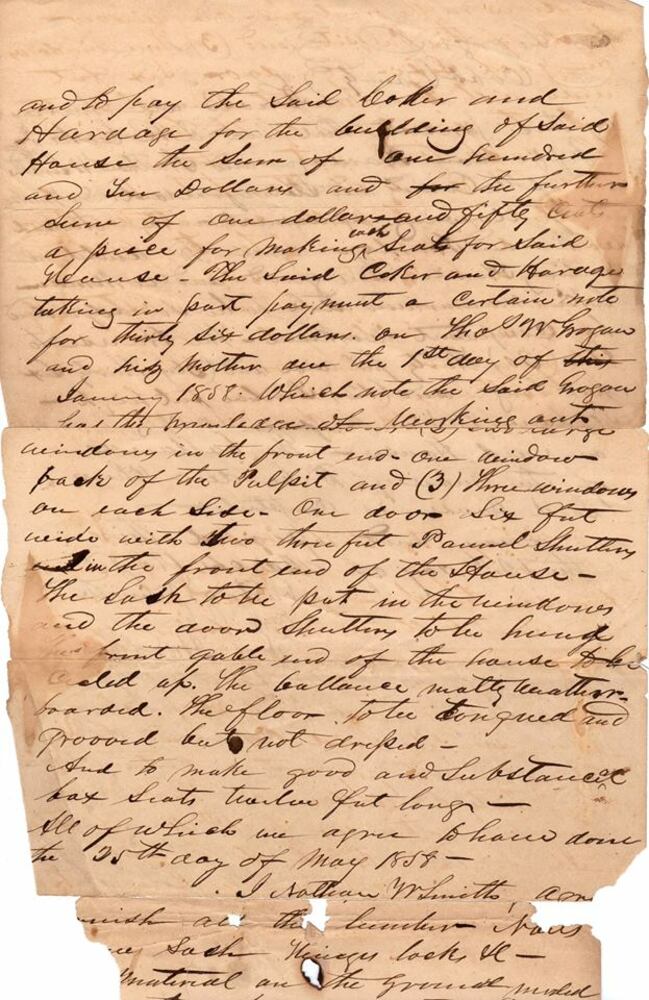 and to pay the Said Coker and
Hardage for the building of Said
House the Sum of one hundred
and Ten Dollars and for the further
Sum of one dollar and fifty cents
a piece for making each Seats for Said
House - The Said Coker and Harage
taking in part payment a certain note
for thirty Six dollars. on Thos W Grogan
and his Mother due the 1st day of this
January 1858. Which note the Said Grogan
has the of Working out
windows in the front end - one window
back of the Pulpit and (3) three windows
on each Side - One door Six feet
wide with two three feet Pannel Shutters
in the front end of the House -
The Sash to be put in the windows
and the door Shutters to be hung
front gable end of the house to be
Cealed up. The ballance weather-
boarded. The floor to be tongued and
grooved but not dressed -
And to make good and Substancial
box Seats twelve feet long -
All of which we agree to have done
the 25th day of May 1858 -
I Nathan W Smith, agree
all the lumber Nails
Sash Hinges locks &c -
material on the ground